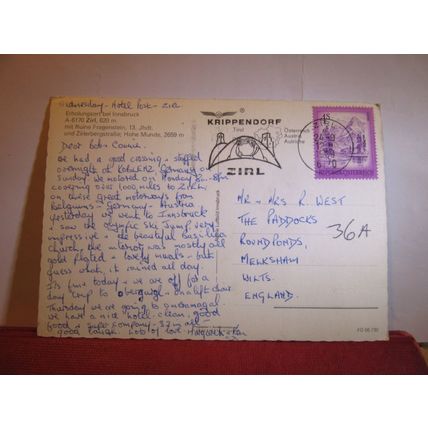 Wednesday - Hotel Post - Zirl
Erholungsort bei Innsbruck
A-6170 Zirl, 620 m
mit Ruine Fragenstein, 13. Jhdt.
und Zirlerbergstraße; Hohe Munde, 2659 m
Dear Bob + Connie.
We had a good crossing - stopped
overnight at Koblenz Germany on
Sunday. We motored on Monday 8am - 8pm
covering over 1000 miles to Zirl
on these great motorways from
Belgium - Germany - Austria
yesterday we went to Innsbruck
+ saw the Olympic Ski Jump very
impressive + the beautiful basilica
church, the interior was mostly all
gold plated + lovely murals - but
guess what, it rained all day.
It's fine today - we are off for a
day trip to Obergurgl - chairlift
Thursday we are going to
we have a nice hotel - clean, good
food + super company - 32 in all
good laugh. Lots of love
KRIPPENDORF
Tirol
ZIRL
Österreich
Austria
Autriche
ZIRL
REPUBLIK ÖSTERREICH
MR + MRS R. WEST
THE PADDOCKS
ROUNDPONDS,
MELKSHAM
WILTS.
ENGLAND.
36A